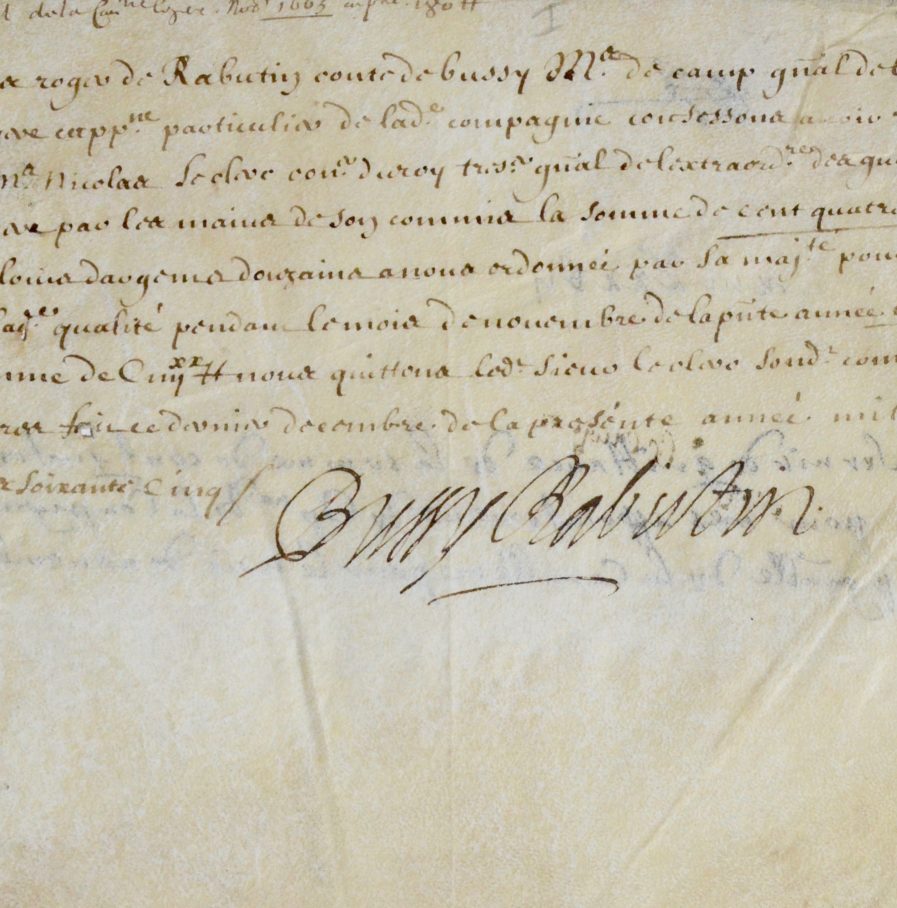 de la Com.ne legere. Nov.e 1665
roger de Rabutin conte de bussy M.e de camp gnãl de l
capp.ne particulier de lad.e compagnie confessons avoir
M.e Nicolas Leclerc con.r du roy tres.r gnãl de lextraord.re des gu
par les mains de son commis la somme de cent quatre
livres dargent a nous ordonnée par Sa maj.te pour
qualité pendant le mois de novembre de la pñte année
de C iiij.xx tt nous quittons led.t Sieur leclerc sond.t com
faict ce dernier decembre de la presente année mil
soixante Cinq /
Bussy Rabutin